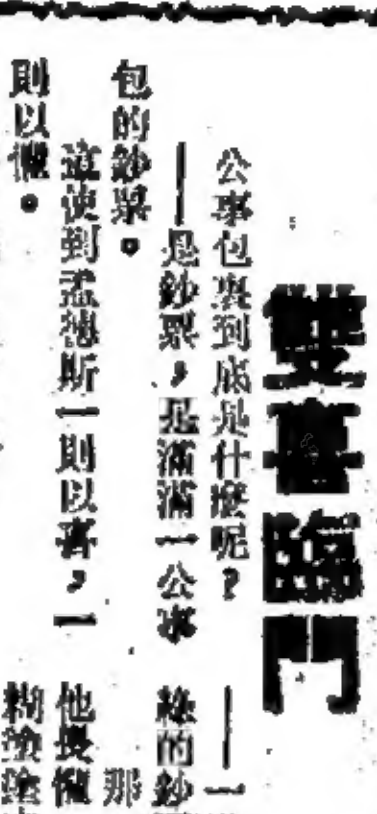 雙喜臨門
公事包裏到底是什麼呢?
——是鈔票,是滿滿一公事
包的鈔票。
這使到孟德斯一則以喜,一
則以懼。
——一
綠的鈔
那
他畏懼
糊塗塗